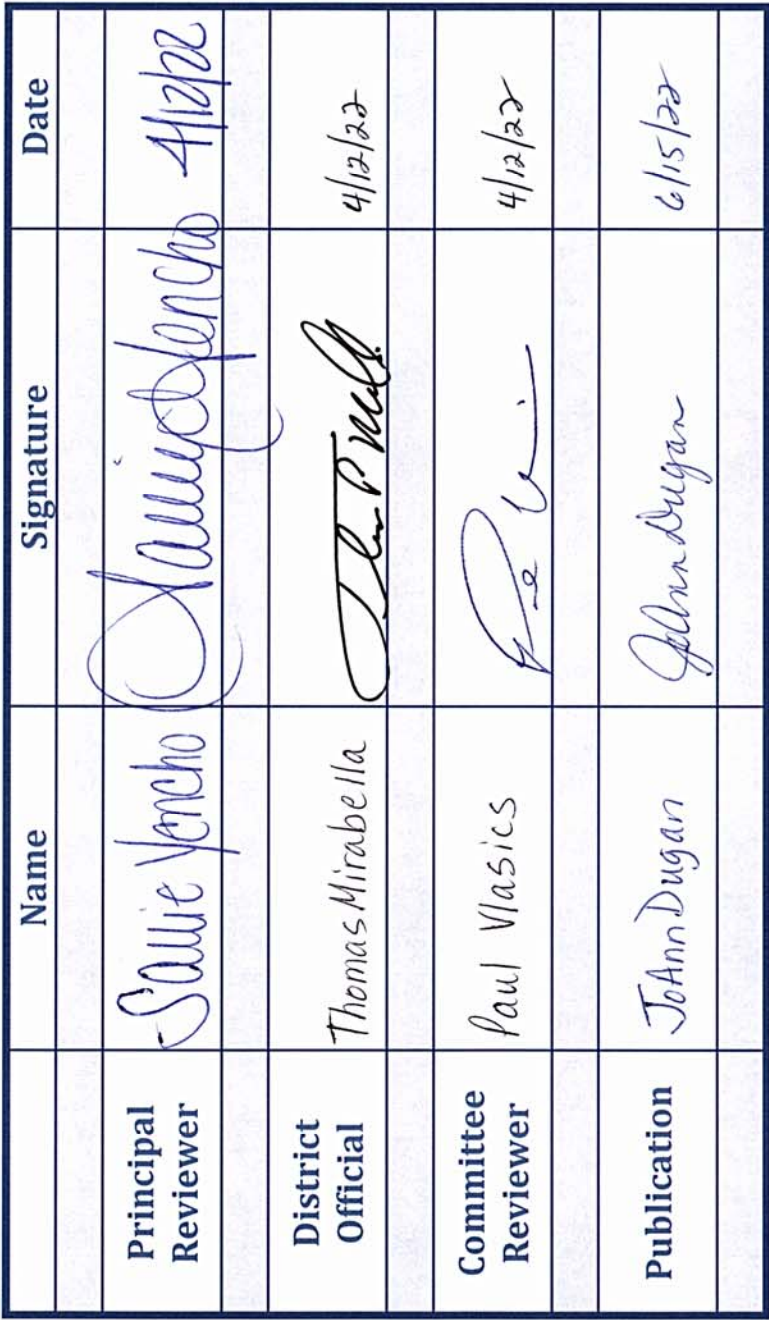 Name Signature Date
Principal Reviewer Sallie Yencho 4/12/22
District Official Thomas Mirabella 4/12/22
Committee Reviewer Paul Vlasics 4/12/22
Publication JoAnn Dugan JoAnn Dugan 6/15/22